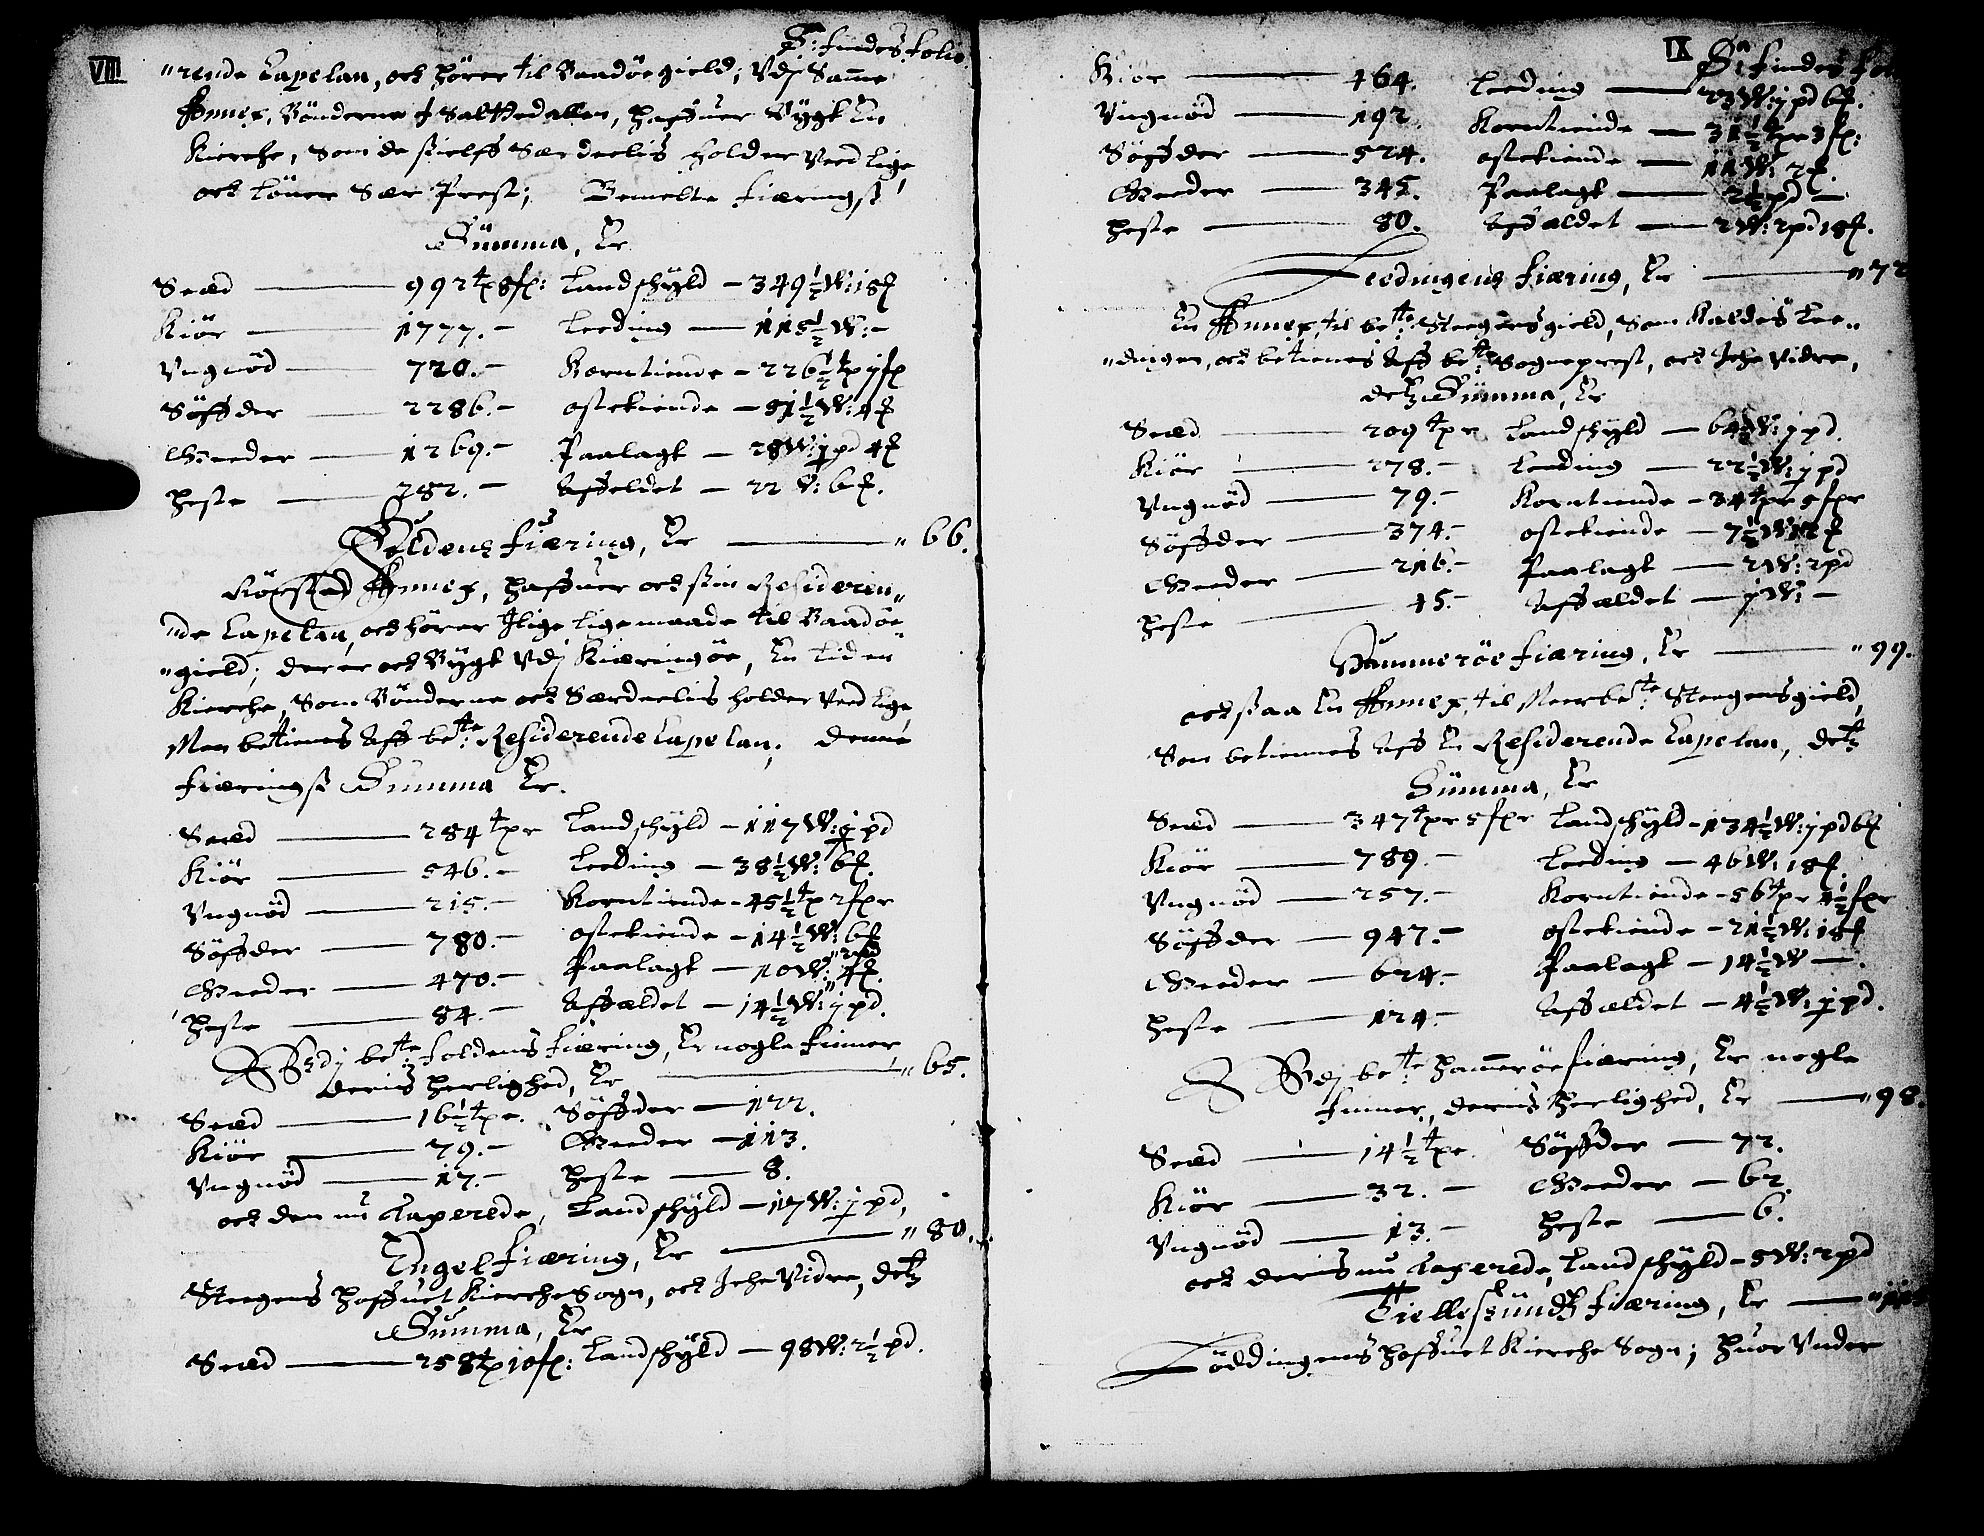 VIII
S: findes folio
"rende Capelan, och hører til Baadøegield; Vdj Samme
Annex, Bønderne j Saltedallen, haffuer Bygt En
Kierche, Som de sielff Særdeelis holder Ved lige,
och Løner Sær Prest; Bemelte fiærings
Summa, Er
Sæd — 992 tr 8 sr: Landschyld — 349½ W: 18 ℔
Kiør — 1777.- Leeding — 115½ W:-
Vngnød — 720.- Korntiende — 226½ tr j sr
Søffder — 2286.- ostetiende — 51½ W: 4 ℔
Geeder — 1269.- Paalagt — 28 W: j pd 4 ℔
heste — 252.- Affældet — 22 W: 6 ℔.
Foldens fiæring, Er — " 66.
Rørstad Annex, haffuer och sin Residerin"
"de Capelan, och hører Ilige lige maade til Baadøe"
"gield; der er och Bygt Vdj Kiæringøe, En liden
Kierche, Som Bønderne och Særdeelis holder Ved lige,
Men betienes Aff be:te Residerende Capelan; Denne
fiærings Summa Er.
Sæd — 284 tr Landschyld — 117 W: j pd
Kiør — 546.- Leeding — 38½ W: 6 ℔.
Vngnød — 215.- Korntiende — 45½ tr 2 sr
Søffder — 780.- ostetiende — 14½ W: 6 ℔
Geeder — 470.- Paalagt — 10 W: 2 pd 4 ℔.
heste — 84.- Affældet — 14½ W: j pd.
Vdj be:te foldens fiæring, Er nogle finner,
deris herlighed, Er — " 65.
Sæd — 16½ tr. Søffder — 122.
Kiør — 79.- Geeder — 113.
Vngnød — 17.- heste — 8.
och den nu Taxerede, Landschyld — 17 W: j pd,
Engelfiæring, Er — " 80.
Steegens hoffuet Kierche Sogn, och Iche Vidre, detz
Summa, Er
Sæd — 258 tr 10 sr: Landschyld — 98 W: 2½ pd.
IX
S: findes fo
Kiør — 464. Leeding — 23 W: j pd 6 ℔.
Vngnød — 192. Korntiende — 31½ tr 3 sr:
Søffder — 524. ostetiende — 11 W: 2 ℔.
Geeder — 345. Paalagt — 2½ pd —
heste — 80. Affældet — 2 W: 2 pd 18 ℔.
Leedingens fiæring, Er — " 72
En Annex, til be:te Steegensgield, Som Kaldis Lee"
"dingen, och betienes Aff be:te Sogneprest, och Iche Vidre,
detz Summa, Er
Sæd — 209 tr Landschyld — 64½ W: j pd.
Kiør — 278.- Leeding — 22½ W: j pd
Vngnød — 79.- Korntiende — 34 tr 5 sr
Søffder — 374.- ostetiende — 7½ W: 12 ℔
Geeder — 216.- Paalagt — 2 W: 2 pd
heste — 45.- Affældet — j W: —
Hammerøe fiæring, Er — " 99.
och saa En Annex, til Meerbe:te Steegensgield,
Som betiennes Aff En Residerende Capelan, detz
Summa, Er
Sæd — 347 tr 5 sr Landschyld — 134½ W: j pd 6 ℔
Kiør — 789.- Leeding — 46 W: 18 ℔.
Vngnød — 257.- Korntiende — 56 tr 4½ sr
Søffder — 947.- ostetiende — 21½ W: 18 ℔
Geeder — 624.- Paalagt — 14½ W —.
heste — 124.- Affældet — 4½ W: j pd.
Vdj be:te hamerøe fiæring, Er nogle
finner, deris herlighed, Er — " 98.
Sæd — 14½ tr. Søffder — 72.
Kiør — 32.- Geeder — 62.
Vngnød — 13.- heste — 6.
och deris nu Taxerede, Landschyld — 5 W: 2 pd
Tiellesundz fiæring, Er —
Løddingens hoffuet Kierche Sogn; huor Vnder